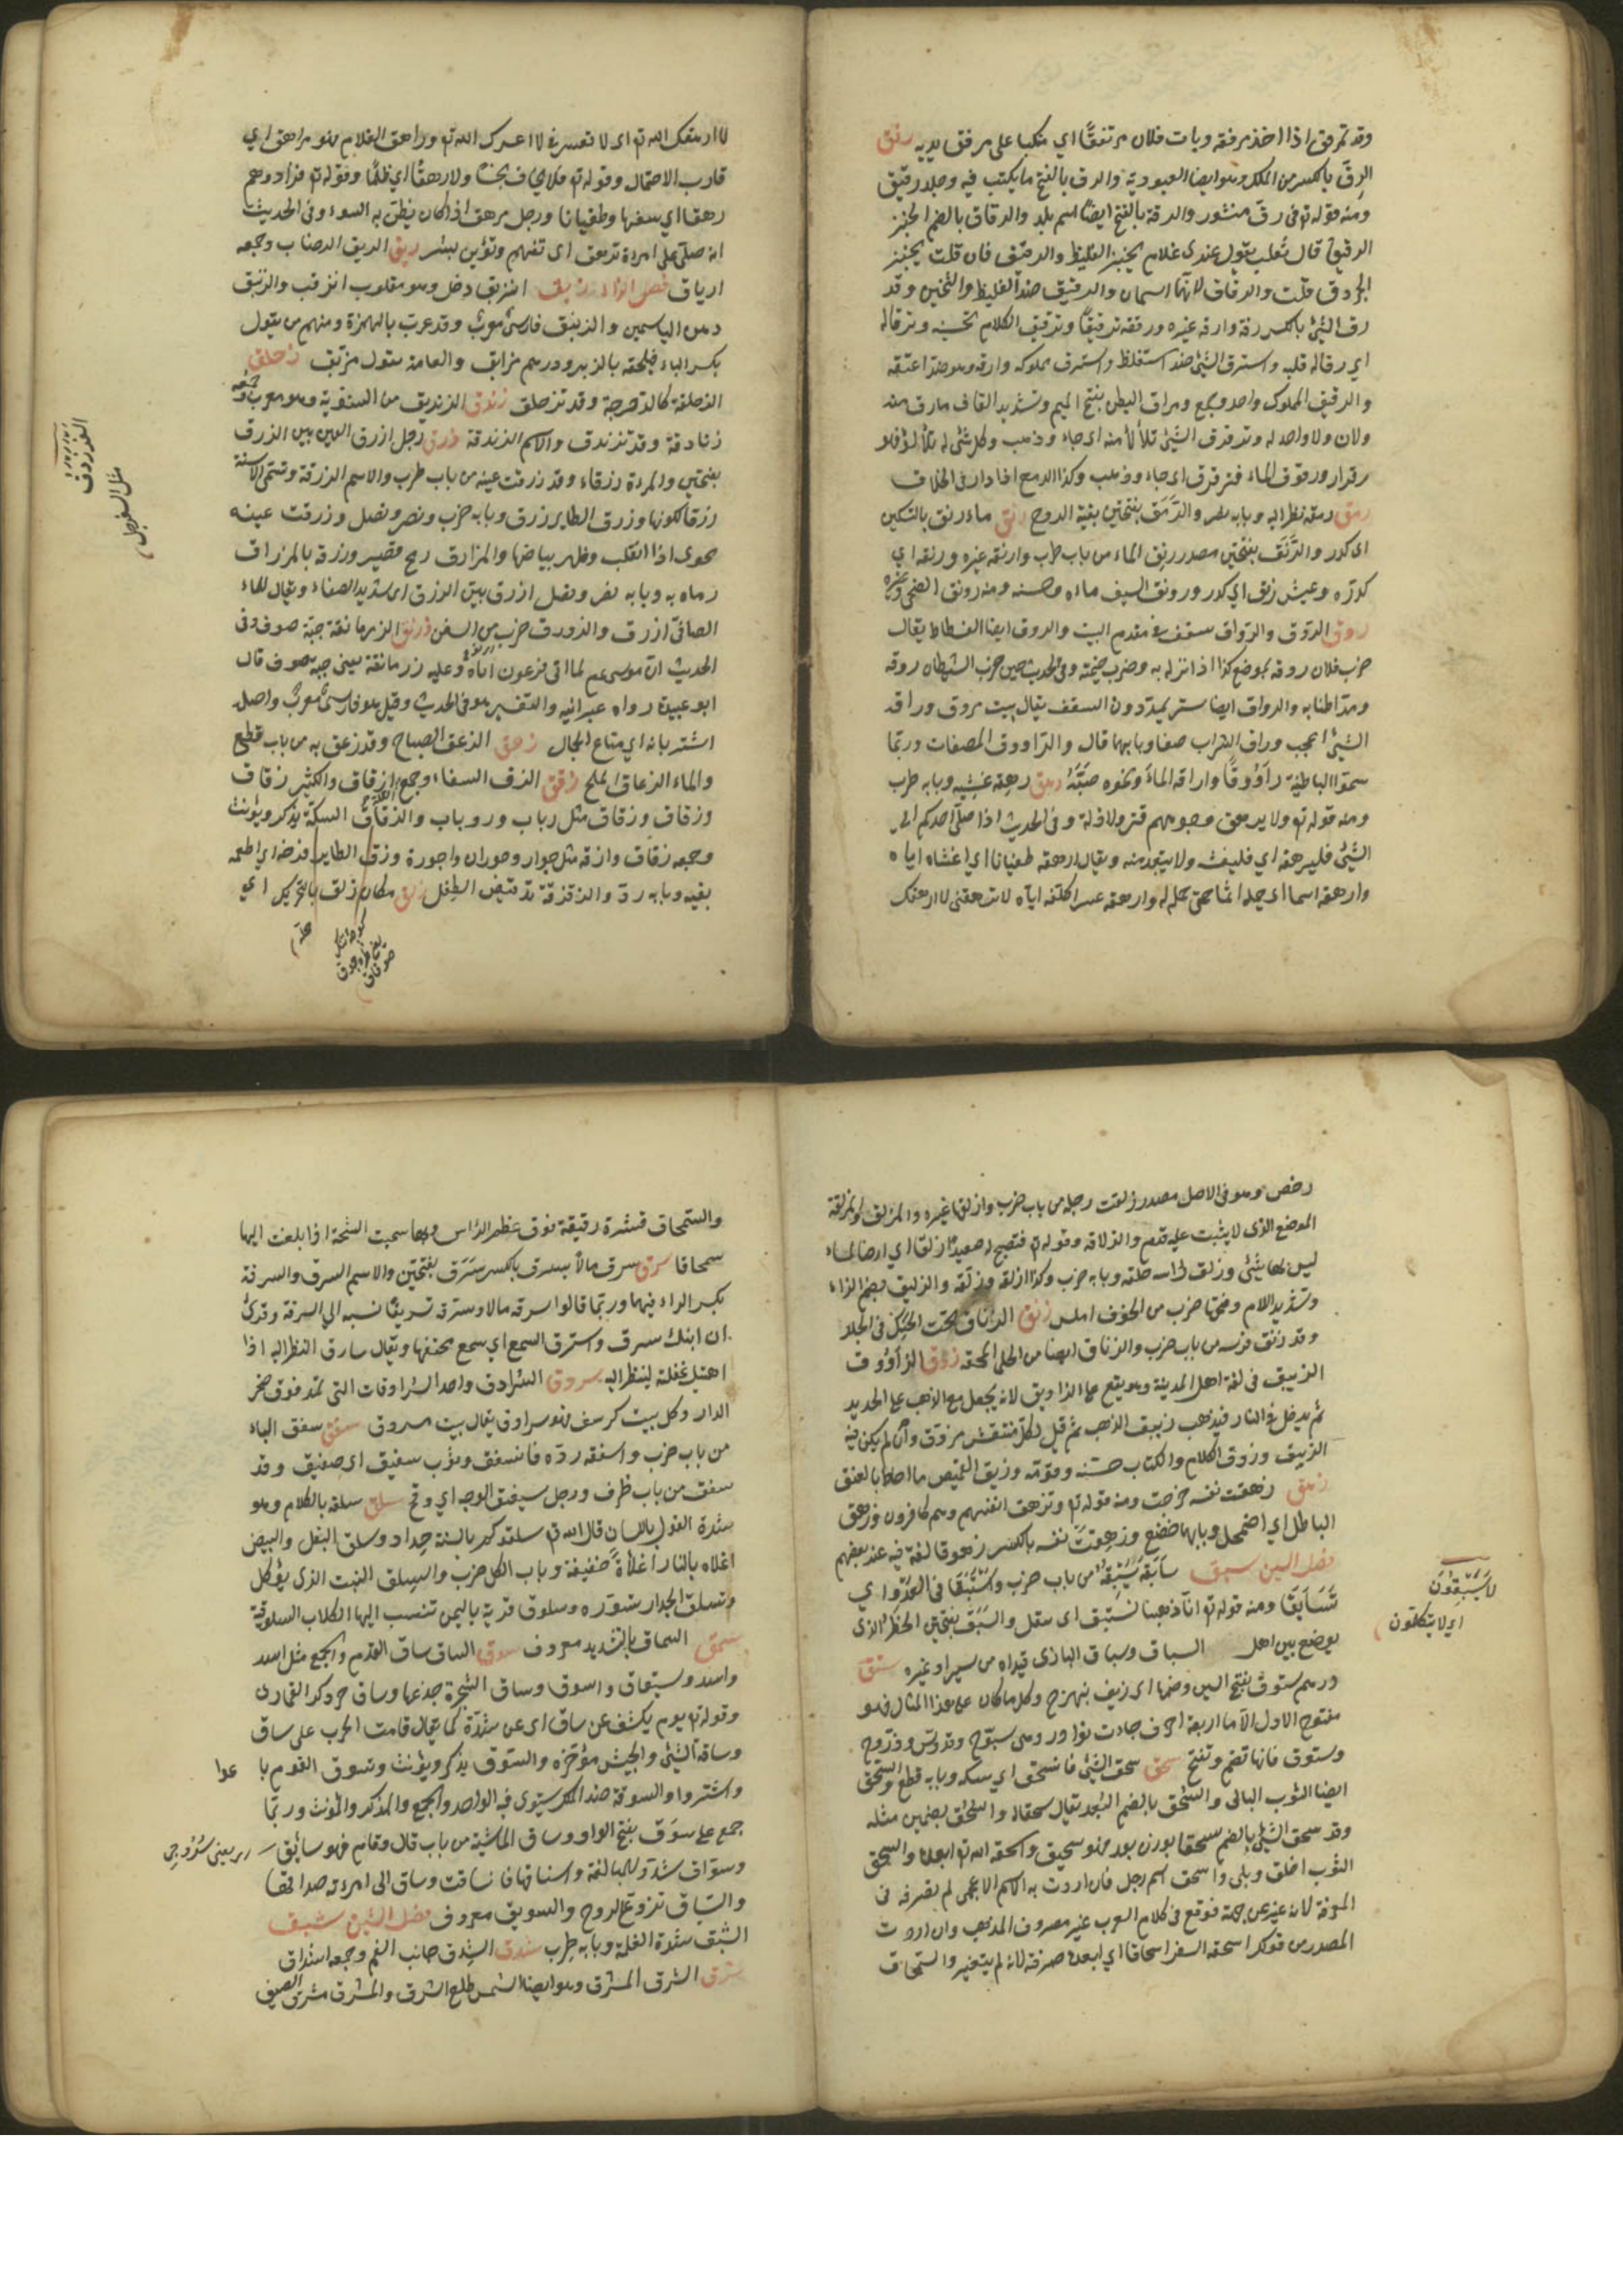 وقد تمرفق اذا اخذ مرفقة وبات فلان مرتفقًا اي متكيا على مرفق يديه رقق
الرق بالكسر من الملك وهو ايضا العبودية والرق بالفتح ما يكتب فيه وجلد رقيق
ومنه قوله تع فى رق منشور والرقة بالفتح ايضا اسم بلد والرقاق بالضم الخبز
الرقيق قال ثعلب يقول عندى غلام يخبز الغليظ والرقيق فان قلت يخبز
الجردق قلت والرقاق لانهما اسمان والرقيق ضد الغليظ والثخين وقد
رق الشئ بالكسر رقة وارقه غيره ورققه ترقيقًا وترقيق الكلام تحسينه وترقاله
اي رقاله قلبه واسترق الشئ ضد استغلظ واسترق مملوكه وارقه وهو ضد اعتقه
والرقيق المملوك واحد وجمع ومراق البطن بفتح الميم وتشديد القاف مارق منه
ولان ولا واحد له وترقرق الشئ تلألأ منه اى جاء وذهب وكل شئ له تلألؤ فهو
رقراق ورقرق الماء فترقرق اى جاء وذهب وكذا الدمع اذا دار فى الحلاق
رمق رمقه نظر اليه وبابه نصر والرَّمَق بفتحتين بقية الروح رنق ماء رنق بالتسكين
اى كدر والرَّنَق بفتحتين مصدر رنق الماء من باب طرب وارنقه غيره ورنقه اي
كدّره وعيش رنق اي كدر ورونق السيف ماءه وحسنه ومنه رونق الضحى وغيره
روق الرَّوْق والرّواق سقف فى مقدم البيت والروق ايضا الفسطاط يقال
ضرب فلان روقه بموضع كذا اذا نزل به وضرب خيمته وفى الحديث حين ضرب الشيطان روقه
ومد اطنابه والرواق ايضا ستر يمد دون السقف يقال بيت مروق وراقه
الشئ اعجبه وراق الشراب صفا وبابهما قال والراووق المصفات وربما
سموا الباطية راووقًا واراقه الماء ونحوه صَبَّهُ رهق رهقه غشيه وبابه طرب
ومنه قوله تع ولا يرهق وجوههم قتر ولا ذلة وفى الحديث اذا صلى احدكم الى
الشئ فليرهقه اي فليغشه ولا يبعد منه ويقال ارهقه طغيانا اي اغشاه اياه
وارهقه اثما اى حمله اثما حتى حمله له وارهقه عسرا كلفه اياه لا ترهقنى لا ارهقك
لا ارهقك الله تع اى لا تعسرنى لا اعسرك الله تع وراهق الغلام فهو مراهق اي
قارب الاحتلام وقوله تع فلا يخاف بخسا ولا رهقًا اي ظلمًا وقوله تع فزادوهم
رهقا اي سفها وطغيانا ورجل مرهق اذا كان يظن به السوء وفى الحديث
انه صلى على امرءة ترهق اى تتهم وتؤبن بشر ريق الريق الرضاب وجمعه
ارياق فصل الزاء زبق انزبق دخل وهو مقلوب انزقب والزنبق
دهن الياسمين والزيبق فارسىّ معرب وقد عرب بالهمزة ومنهم من يقول
بكسر الباء فيلحقه بالزبير ودرهم مزابق والعامة تقول مزبق زحلق
الزحلقة كالدحرجة وقد تزحلق زندق الزنديق من الثنوية وهو معرب وجمعه
زنادقة وقد تزندق والاسم الزندقة زرق رجل ازرق العين بين الزرق
بفتحتين والمرءة زرقاء وقد زرقت عينه من باب طرب والاسم الزرقة وتسمى الاسنة
زرقا للونها وزرق الطاير ذرق وبابه ضرب ونصر ونصل وزرقت عينه
نحوى اذا انقلب وظهر بياضها والمزارق رمح قصير وزرقه بالمزراق
رماه به وبابه نصر ونصل ازرق بين الزرق اى شديد الصفاء ويقال للماء
الصافى ازرق والزورق ضرب من السفن زرنق الزرمانقة جبة صوف وفى
الحديث ان موسى عم لما اتى فرعون اتاه وعليه زرمانقة يعنى جبة صوف قال
ابو عبيدة اراه عبرانيه والتفسير هو فى الحديث وقيل هو فارسى معرب واصله
اشتربانه اي متاع الجمال زعق الزعق الصياح وقد زعق به من باب قطع
والماء الزعاق الملح زقق الزق السقاء وجمع القلة ازقاق والكثير زقاق
وزقاق وزقاق مثل رباب ورباب والزقاق السكة يذكر ويؤنث
وجمعه زقاق وازقة مثل حوار وحوران واحورة وزق الطاير فرخه اي اطعمه
بفيه وبابه رد والزقزقة ترقيص الطفل زلق مكان زلق بالتحريك اي
الفرزدق
مثل السفرجل
رخص وهو فى الاصل مصدر زلقت رجله من باب ضرب وازلقها غيره والمزلق والمزلقة
الموضع الذى لا يثبت عليه قدم والزلاقة وقوله تع فتصبح صعيدًا زلقا اي ارضا ملساء
ليس بها شئ وزلق راسه حلقه وبابه ضرب وكذا ازلقه وزلّقه والزليق بضم الزاء
وتشديد اللام وفتحها ضرب من الخوخ املس زنق الزناق تحت الحنك فى الجلد
وقد زنق فرسه من باب ضرب والزناق ايضا من الحلى المخنقة زوق الزاووق
الزيبق فى لغة اهل المدينة وهو يقع على الزاويق لانه يجعل مع الذهب على الحديد
ثم يدخل فى النار فيذهب زيبق الذهب ثم قيل لكل منقش مزوق وان لم يكن فيه
الزيبق وزوق الكلام والكتاب حسنه وقومه وزيق القميص ما احاط بالعنق
زهق زهقت نفسه خرجت ومنه قوله تع وتزهق انفسهم وهم كافرون وزهق
الباطل اي اضمحل وبابهما خضع وزهِقت نفسه بالكسر زهوقا لغة فيه عند بعضهم
فصل السين سبق سابَقَه فَسَبَقَهُ من باب ضرب واسْتَبَقا فى العدوّ اي
تَسابَقَا ومنه قوله تع انا ذهبنا نستبق اى ننتضل والسَبَق بفتحتين الخطر الذى
يوضع بين اهل السباق وسباق البازى قيداه من سير او غيره ستق
درهم ستوق بفتح السين وضمها اى زيف بهرج وكل ما كان على هذا المثال فهو
مفتوح الاول الا ما اربعة احرف جاءت نوادر وهى سبوح وقدوس وذروح
وستوق فانها تضم وتفتح سحق سحق الشئ فانسحق اي سهكه وبابه قطع والسحق
ايضا الثوب البالى والسحق بالضم البعد يقال سحقا له والسحق بضمتين مثله
وقد سحق الشئ بالضم سحقا بوزن بعد فهو سحيق واسحقه الله تع ابعده والسحق
الثوب اخلق وبلى واسحق اسم رجل فان اردت به الاسم الاعجمى لم تصرفه فى
المعرفة لانه غير عن جهته فوقع فى كلام العرب غير معروف المذهب وان اردت
المصدر من قولك اسحقه السفر اسحاقا اي ابعده صرفته لانه لم يتغير والسمحاق
لا يَسْبِقُونَ
اى لا يتكلمون
والسمحاق قشرة رقيقة فوق عظم الراس وبها سميت الشجة اذا بلغت اليها
سمحاقا سرق سرق مالا يسرق بالكسر سَرَق بفتحتين والاسم السرق والسرقة
بكسر الراء فيهما وربما قالوا سرقه مالا وسرقه تسريقًا نسبه الى السرقة وقرئ
ان ابنك سرق واسترق السمع اي سمع مختفيا ويقال سارق النظر اليه اذا
اهتبل غفلة لينظر اليه سردق السرادق واحد السرادقات التى تمد فوق صحن
الدار وكل بيت كرسف فهو سرادق يقال بيت مسردق سفق سفق الباب
من باب ضرب واسفقه رده فانسفق وثوب سفيق اى صفيق وقد
سفق من باب ظرف ورجل سفيق الوجه اي وقح سلق سلقه بالكلام وهو
شدة القول باللسان قال الله تع سلقوكم بالسنة حداد وسلق البقل والبيض
اغلاه بالنار اغلاءة خفيفة وباب الكل ضرب والسلق النبت الذى يؤكل
وتسلق الجدار تسوره وسلوق قرية باليمن تنسب اليها الكلاب السلوقية
سمق السماق بالتشديد معروف سوق الساق ساق القدم والجمع مثل اسد
واسد وسيقان واسوق وساق الشجرة جذعها وساق حر ذكر القمارى
وقوله تع يوم يكشف عن ساق اى عن شدة كما يقال قامت الحرب على ساق
وساقة الشئ والجيش مؤخره والسوق يذكر ويؤنث وتسوق القوم باعوا
واشتروا والسوقة ضد الملك يستوى فيه الواحد والجمع والمذكر والمؤنث وربما
جمع على سوق بفتح الواو وساق الماشية من باب قال وقام فهو سائق
وسواق شدد للمبالغة واستاقها فانساقت وساق الى امرءته صداقها
والسياق نزع الروح والسويق معروف فصل الشين شبق
الشبق شدة الغلمة وبابه طرب شدق الشدق جانب الفم وجمعه اشداق
شرق الشرق المشرق وهو ايضا الشمس طلع الشرق والمشرق مشرق الصيف